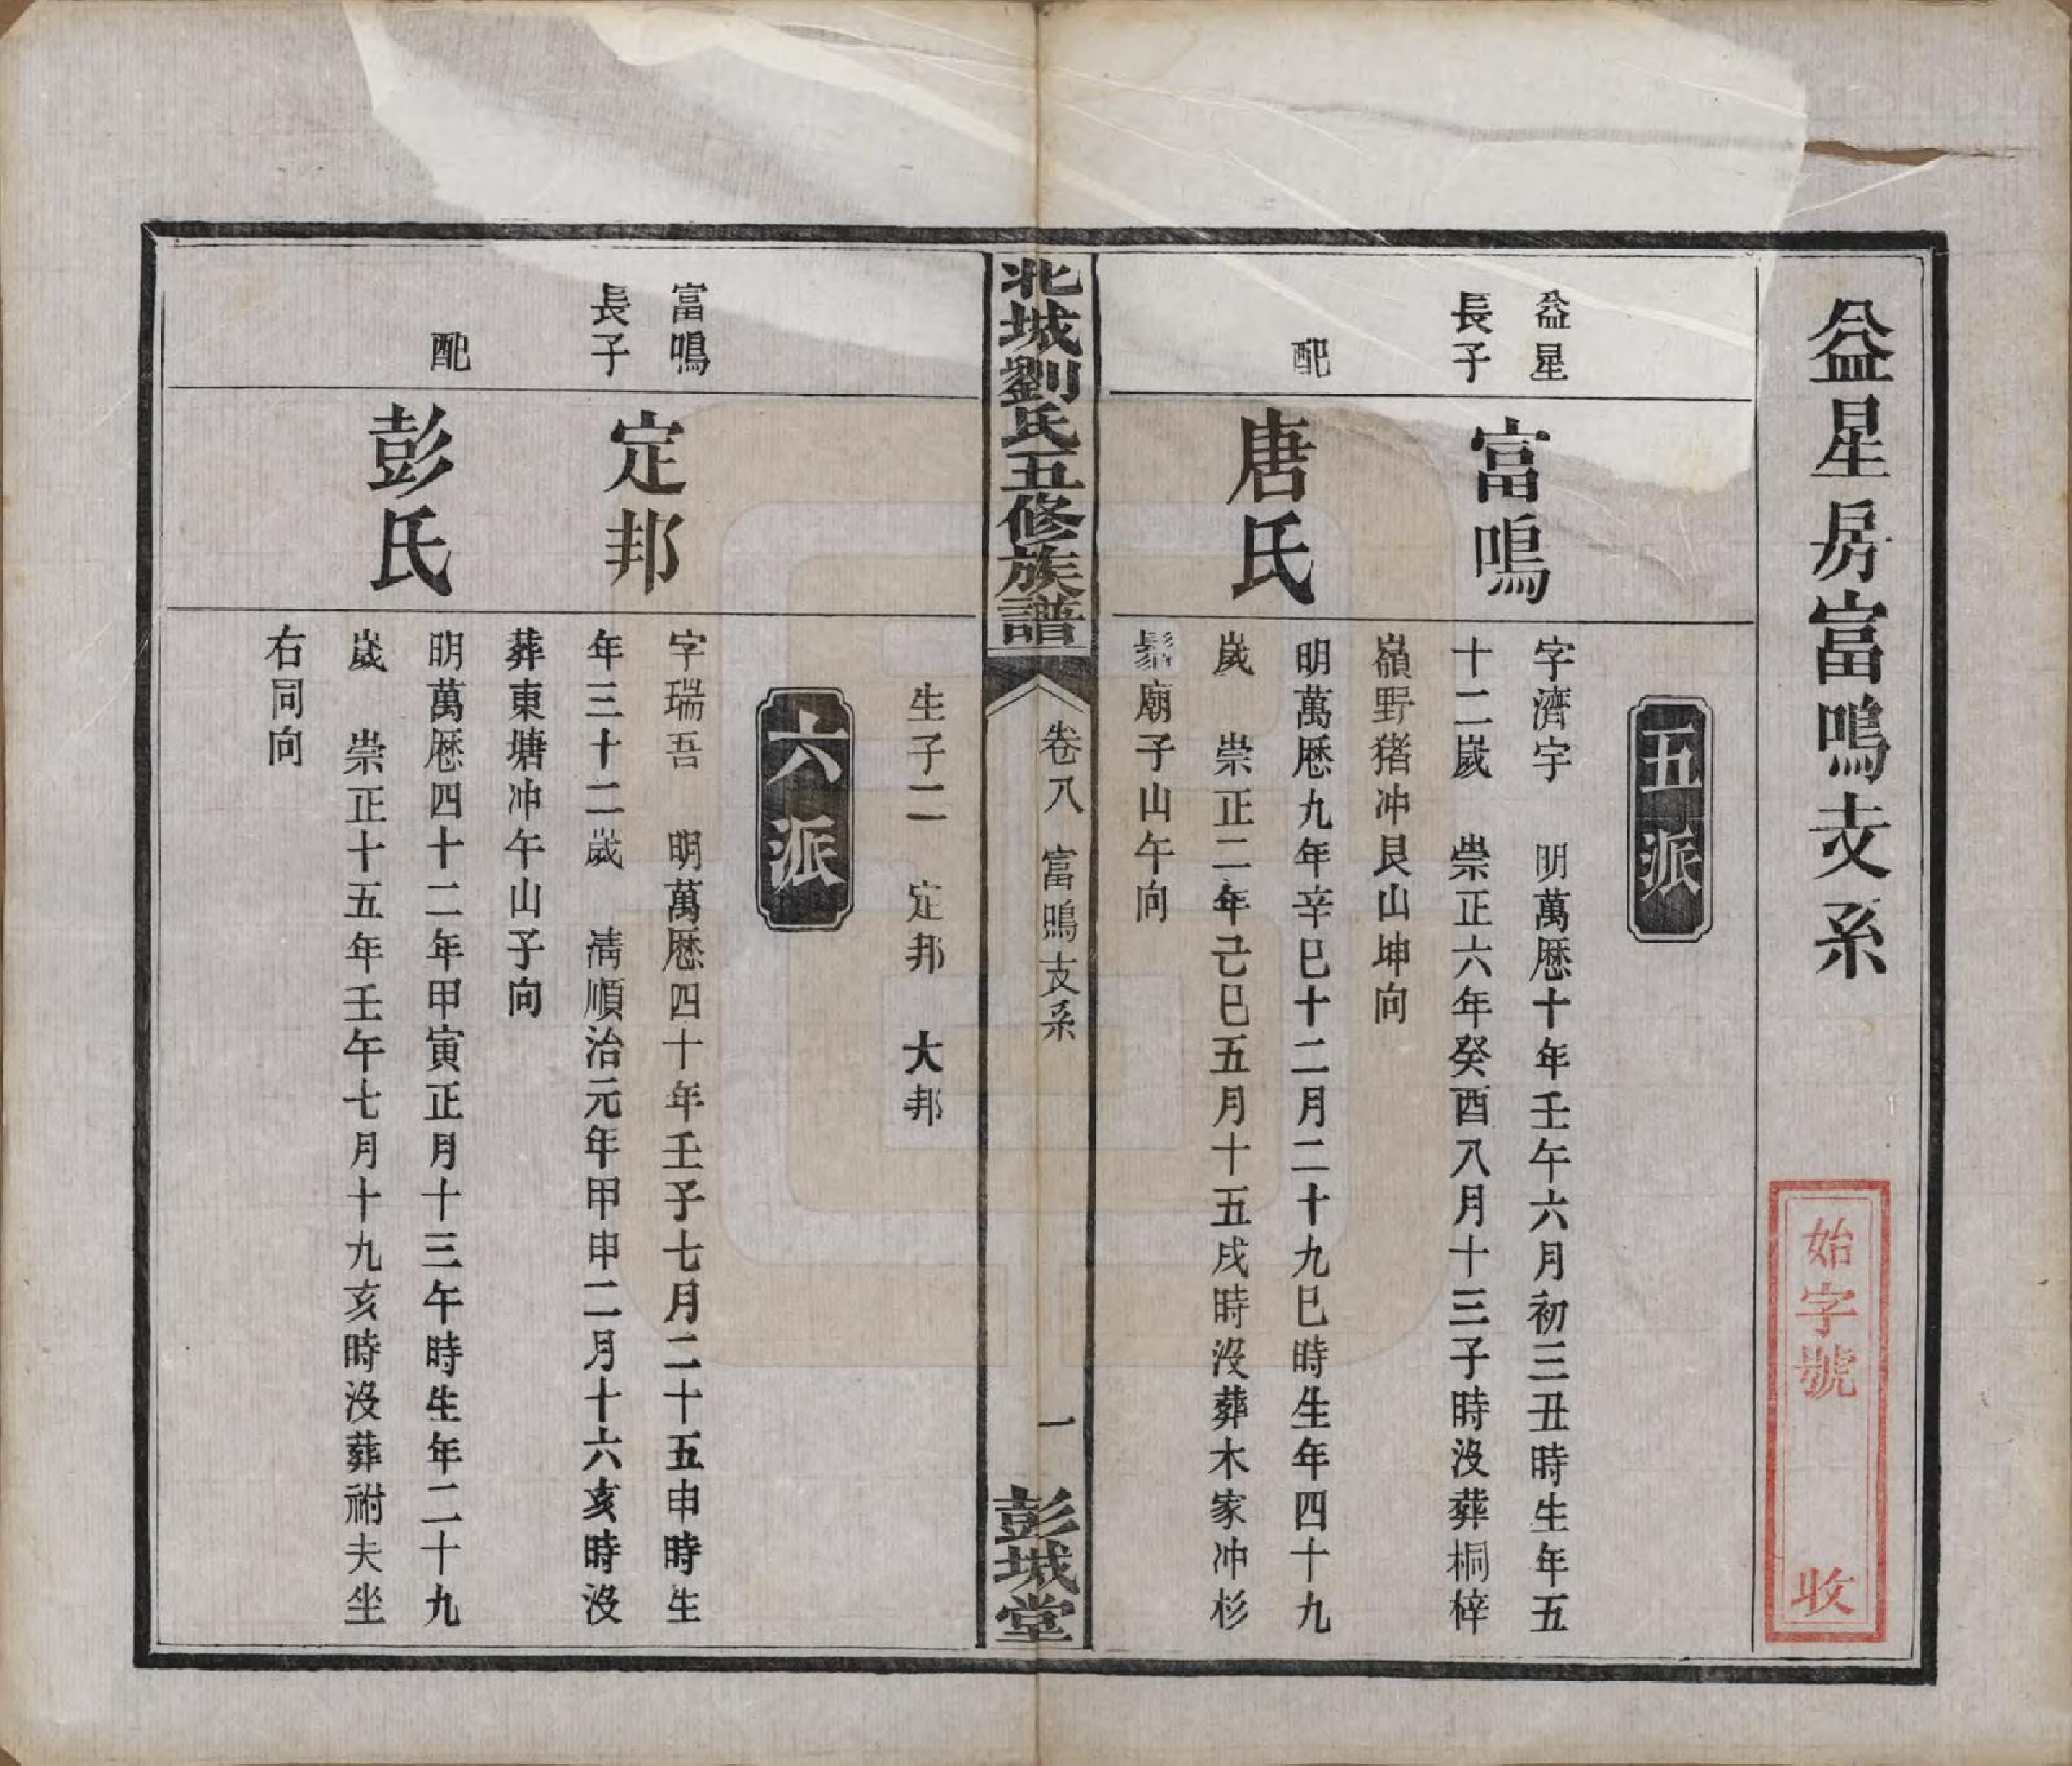 益星房富鳴支系
始字號 收
五派
益星
長子
富鳴
字濟宇 明萬厯十年壬午六月初三丑時生年五
十二歲 崇正六年癸酉八月十三子時沒葬桐梓
嶺野猪冲艮山坤向
配
唐氏
明萬厯九年辛巳十二月二十九巳時生年四十九
歲 崇正二年己巳五月十五戌時沒葬木家冲杉
廟子山午向
北城劉氏五修族譜
卷八 富鳴支系
一
彭城堂
生子二 定邦 大邦
六派
富鳴
長子
定邦
字瑞吾 明萬厯四十年壬子七月二十五申時生
年三十二歲 淸順治元年甲申二月十六亥時沒
葬東塘冲午山子向
配
彭氏
明萬厯四十二年甲寅正月十三午時生年二十九
歲 崇正十五年壬午七月十九亥時沒葬祔夫坐
右同向